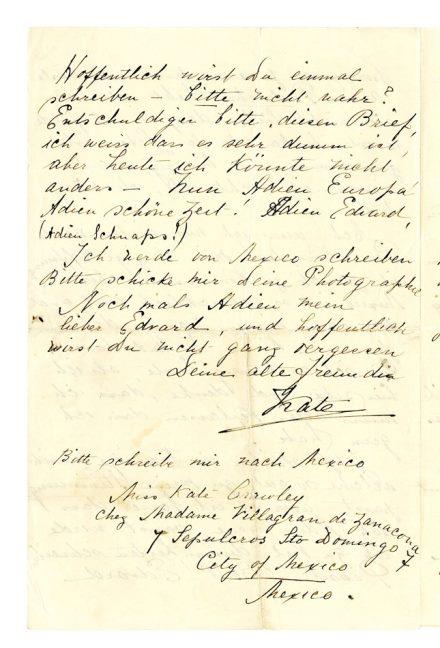 Hoffentlich wirst Du einmal
schreiben – bitte, nicht wahr?
Entschuldiger bitte, diesen Brief,
ich weiss dass es sehr dumm ist,
aber heute ich könnte nicht
anders – Nun Adieu Europa!
Adieu schöne Zeit! Adieu Edvard!
(Adieu Schnaps!)
Ich werde von Mexico schreiben
Bitte schicke mir Deine Photographie
Noch mals Adieu mein
lieber Edvard, und hoffentlich
wirst Du nicht ganz vergessen
Deine alte Freundin
Kate
Bitte schreibe mir nach Mexico
Miss Kate Crowley
chez Madame Villagran de Zanacona
7 Sepulcros Sto Domingo 7
City of Mexico
Mexico.